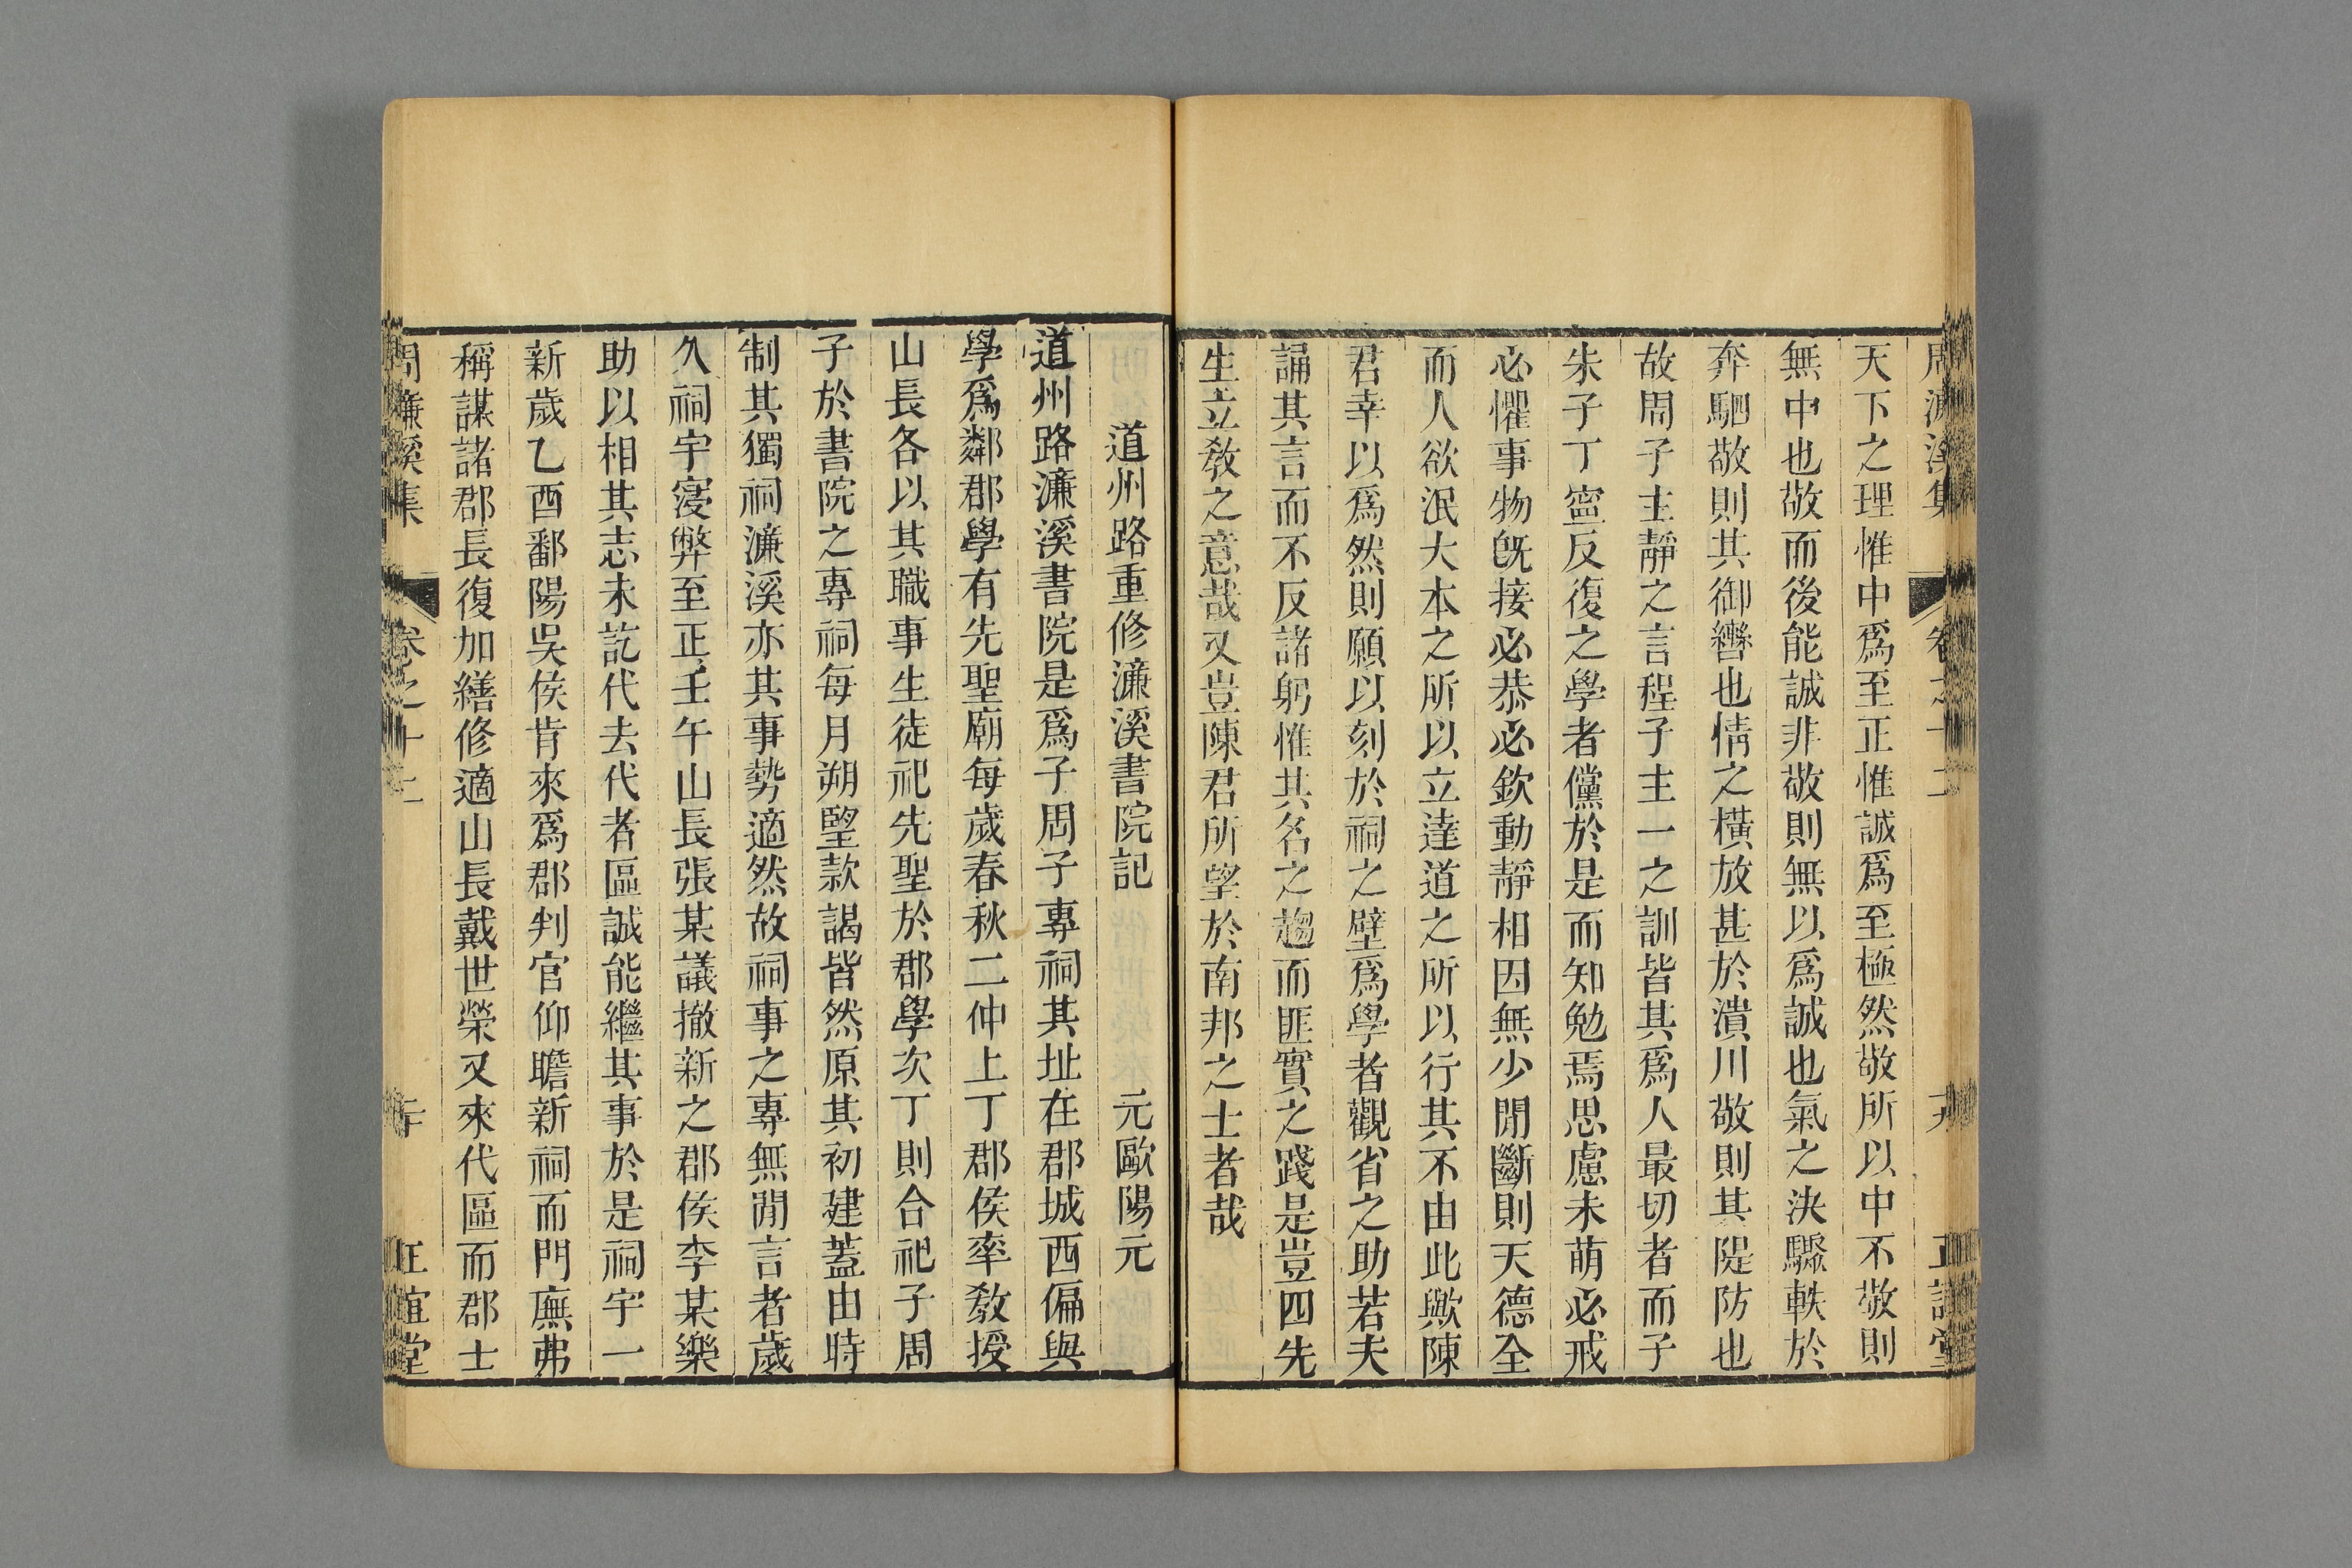 周濂溪集 卷之十二 十九 正誼堂
天下之理惟中爲至正惟誠爲至極然敬所以中不敬則
無中也敬而後能誠非敬則無以爲誠也氣之決驟軼於
奔駟敬則其御轡也情之橫放甚於潰川敬則其隄防也
故周子主靜之言程子主一之訓皆其爲人最切者而子
朱子丁寧反復之學者儻於是而知勉焉思慮未萌必戒
必懼事物旣接必恭必欽動靜相因無少閒斷則天德全
而人欲泯大本之所以立達道之所以行其不由此歟陳
君幸以爲然則願以刻於祠之壁爲學者觀省之助若夫
誦其言而不反諸躬惟其名之趨而匪實之踐是豈四先
生立敎之意哉又豈陳君所望於南邦之士者哉
道州路重修濂溪書院記 元歐陽元
道州路濂溪書院是爲子周子專祠其址在郡城西偏與
學爲鄰郡學有先聖廟每歲春秋二仲上丁郡侯率敎授
山長各以其職事生徒祀先聖於郡學次丁則合祀子周
子於書院之專祠每月朔朢款謁皆然原其初建蓋由時
制其獨祠濂溪亦其事勢適然故祠事之專無閒言者歲
久祠宇寖弊至正壬午山長張某議撤新之郡侯李某樂
助以相其志未訖代去代者區誠能繼其事於是祠宇一
新歲乙酉鄱陽吳侯肯來爲郡判官仰瞻新祠而門廡弗
稱謀諸郡長復加繕修適山長戴世榮又來代區而郡士
周濂溪集 卷之十二 二十 正誼堂